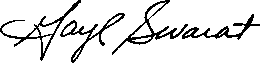 Gayl Swarat